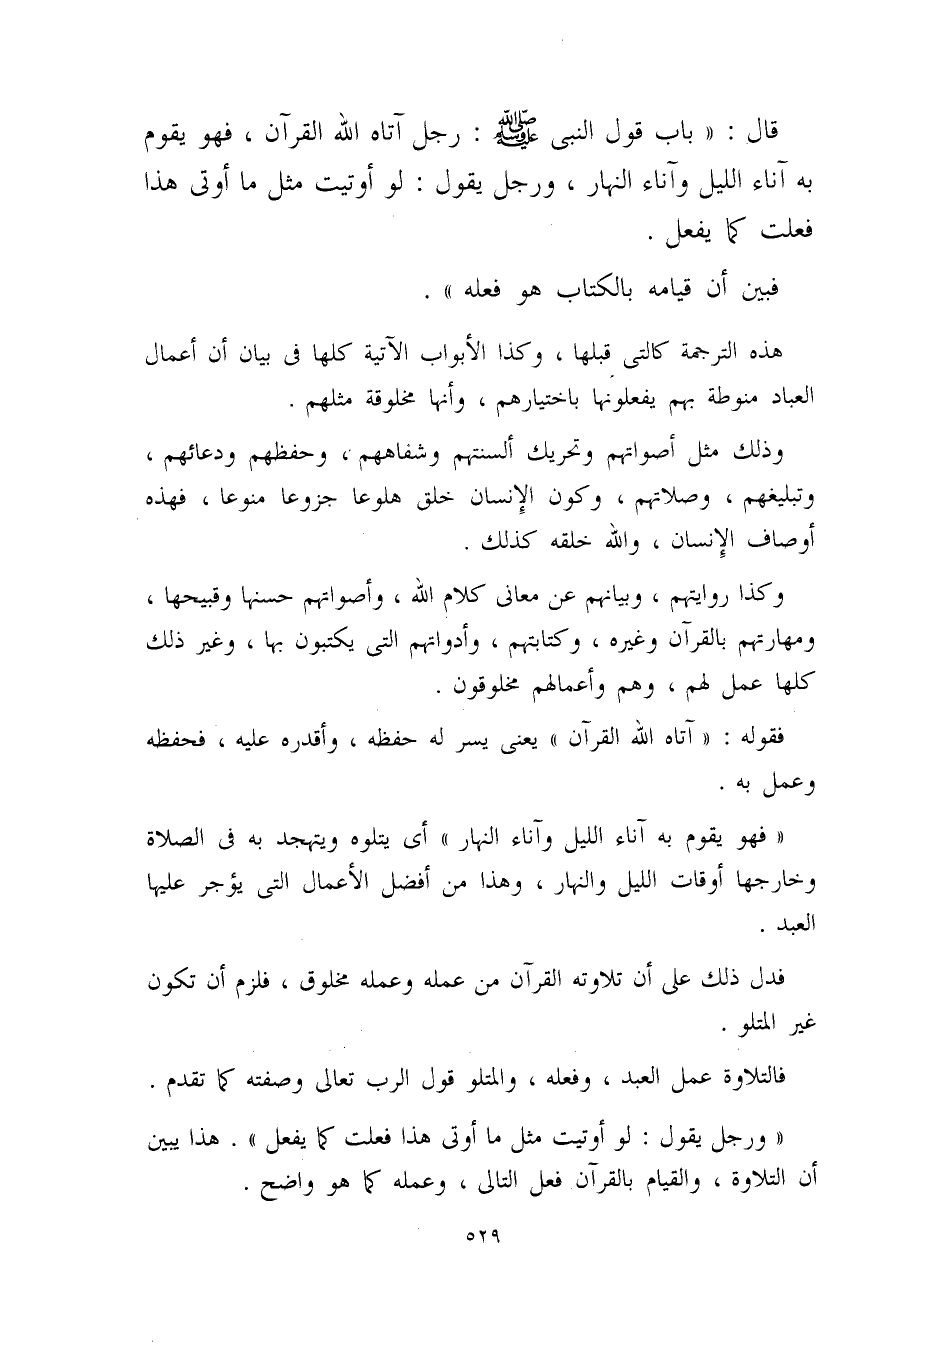 قال : « باب قول النبى ﷺ : رجل آتاه الله القرآن ، فهو يقوم
به آناء الليل وآناء النهار ، ورجل يقول : لو أوتيت مثل ما أوتى هذا
فعلت كما يفعل .
فبين أن قيامه بالكتاب هو فعله » .
هذه الترجمة كالتى قبلها ، وكذا الأبواب الآتية كلها فى بيان أن أعمال
العباد منوطة بهم يفعلونها باختيارهم ، وأنها مخلوقة مثلهم .
وذلك مثل أصواتهم وتحريك ألسنتهم وشفاههم ، وحفظهم ودعائهم ،
وتبليغهم ، وصلاتهم ، وكون الإنسان خلق هلوعا جزوعا منوعا ، فهذه
أوصاف الإنسان ، والله خلقه كذلك .
وكذا روايتهم ، وبيانهم عن معانى كلام الله ، وأصواتهم حسنها وقبيحها ،
ومهارتهم بالقرآن وغيره ، وكتابتهم ، وأدواتهم التى يكتبون بها ، وغير ذلك
كلها عمل لهم ، وهم وأعمالهم مخلوقون .
فقوله : « آتاه الله القرآن » يعنى يسر له حفظه ، وأقدره عليه ، فحفظه
وعمل به .
« فهو يقوم به آناء الليل وآناء النهار » أى يتلوه ويتهجد به فى الصلاة
وخارجها أوقات الليل والنهار ، وهذا من أفضل الأعمال التى يؤجر عليها
العبد .
فدل ذلك على أن تلاوته القرآن من عمله وعمله مخلوق ، فلزم أن تكون
غير المتلو .
فالتلاوة عمل العبد ، وفعله ، والمتلو قول الرب تعالى وصفته كما تقدم .
« ورجل يقول : لو أوتيت مثل ما أوتى هذا فعلت كما يفعل » . هذا يبين
أن التلاوة ، والقيام بالقرآن فعل التالى ، وعمله كما هو واضح .
٥٢٩